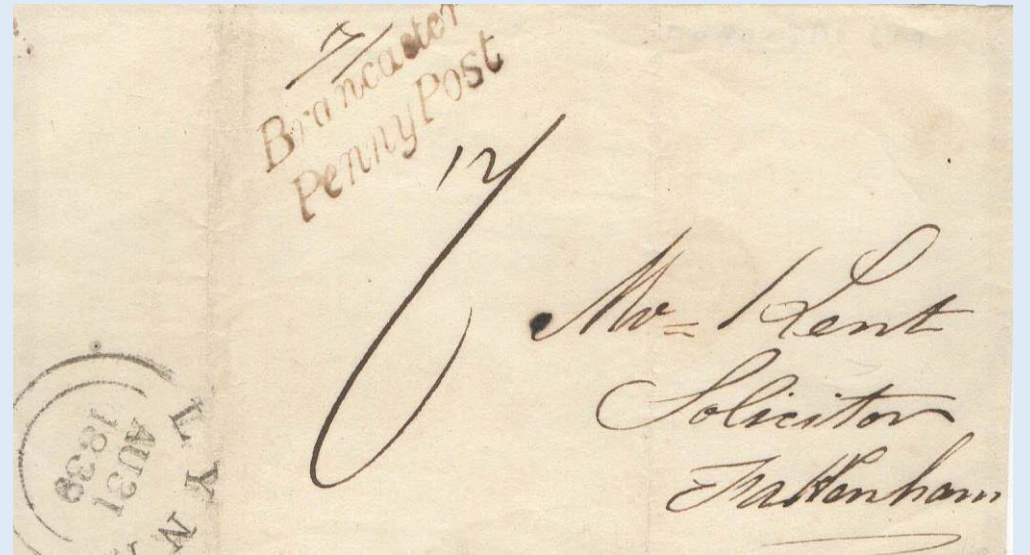 Brancaster
Penny Post
Mr Kent
Solicitor
Fakenham
LYN
AU 31
1839